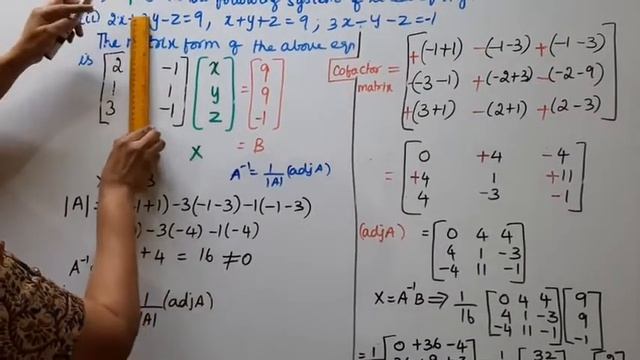 (ii) 2x+3y-z=9, x+y+z=9; 3x-y-z=-1
The matrix form of the above eqn
is [2 -1; 1 1; 3 -1] [x; y; z] = [9; 9; -1]
X = B
A⁻¹ = 1/|A| (adjA)
|A| = +1) -3(-1-3) -1(-1-3)
) -3(-4) -1(-4)
+ 4 = 16 ≠ 0
A⁻¹
1/|A| (adjA)
Cofactor matrix = [+(-1+1) -(-1-3) +(-1-3); -(-3-1) +(-2+3) -(-2-9); +(3+1) -(2+1) +(2-3)]
= [0 +4 -4; +4 1 +11; 4 -3 -1]
(adjA) = [0 4 4; 4 1 -3; -4 11 -1]
X = A⁻¹B ⇒ 1/16 [0 4 4; 4 1 -3; -4 11 -1] [9; 9; -1]
= 1 [0 +36 -4
32